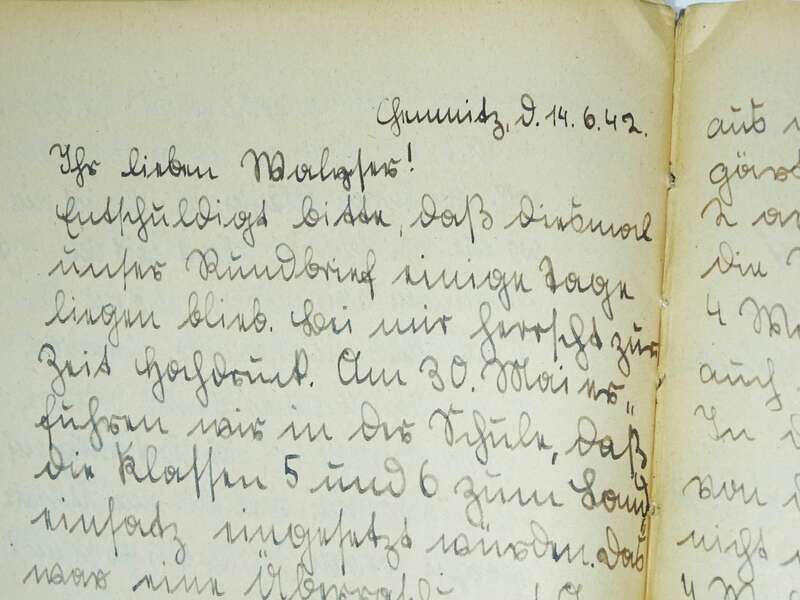 Chemnitz, d. 14.6.42.
Ihr lieben Walyser!
Entschuldigt bitte, daß diesmal
unser Rundbrief einige Tage
liegen blieb. Bei mir herrscht zur
Zeit Hochdruck. Am 30. Mai er„
fuhren wir in der Schule, daß
die Klassen 5 und 6 zum Land„
einsatz eingesetzt würden. Das
war eine
aus
2
die
4
auch
In
von
nicht
4